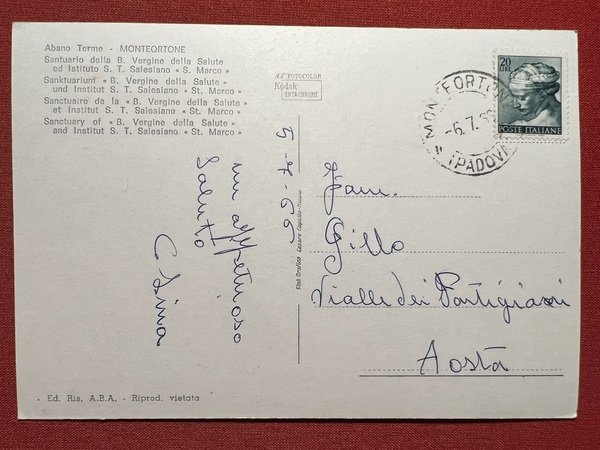 Abano Terme - MONTEORTONE
Santuario della B. Vergine della Salute
ed Istituto S. T. Salesiano « S. Marco »
Sanktuarium « B. Vergine della Salute »
und Institut S. T. Salesiano « St. Marco »
Sanctuaire de la « B. Vergine della Salute »
et Institut S. T. Salesiano « St. Marco »
Sanctuary of « B. Vergine della Salute »
and Institut S. T. Salesiano « St. Marco »
FOTOCOLOR
Kodak
EKTACHROME
20
LIRE
POSTE ITALIANE
-6.7.
(PADOVA)
5-7-66
un affettuoso
saluto
Stab. Grafico Cesare Capello-Milano
Fam.
Gillo
Vialle dei Partigiani
Aosta
Ed. Ris. A.B.A. - Riprod. vietata